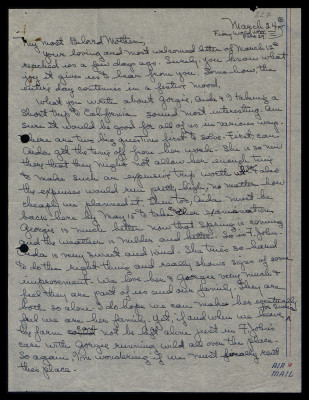 March 24
My most Beloved Mother,
Your loving and most welcomed letter of March 15
reached us a few days ago. Surely, you know what
joy it gives us to hear from you. Somehow the
entire day continues in a festive mood.
What you write about Georgie, Aida & I taking a
short trip to California sound most interesting. Am
sure it would be good for all of us in various ways.
There are two big questions to solve. First, can
Aida get the time off from her work. She is so new
there that they might not allow her enough time
to make such an expensive trip worth while. Also
the expenses would run pretty high, no matter how
cheaply we planned it. Then too, Aida must be
back here by May 15 to take her examination.
Georgie is much better now that Spring is coming
and the weather is milder and better. So is F. John.
Aida is very sweet and kind. She tries so hard
to do the right thing and really shows signs of some
improvement. We love her & Georgie very much &
feel they are part of us and our family. They are
both so alone. I do hope we can make her
feel we are her family. Yet, if and when we leave
the farm not be left alone just in F. John's
care with Georgie running wild all over the place.
So again, I'm wondering if we must finally rent
this place.
AIR
MAIL